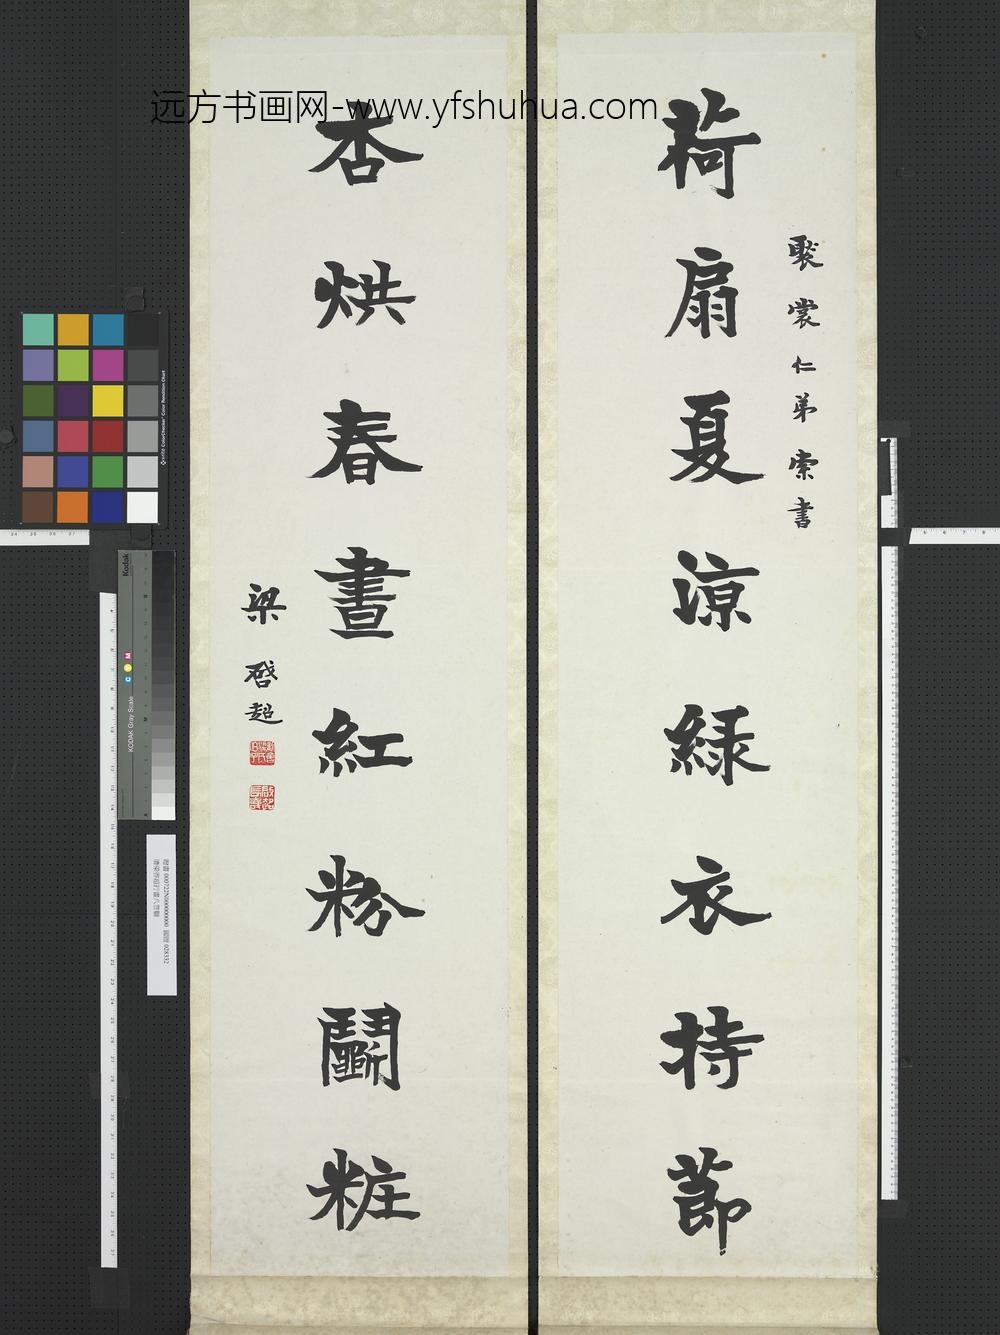 远方书画网-www.yfshuhua.com
聚裳仁弟索書
荷扇夏涼綠衣持節
杏烘春晝紅粉鬭粧
梁啓超
Kodak
KODAK Gray Scale
C Y M
ColorChecker Color Rendition Chart